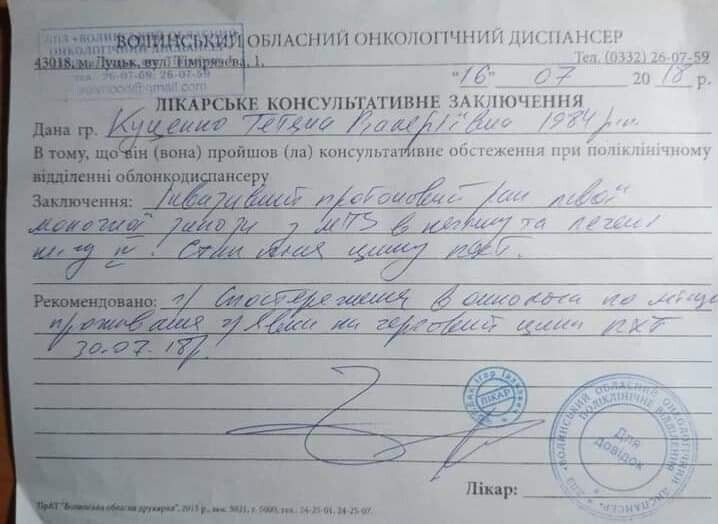 ЛПЗ «ВОЛИНСЬКИЙ ОБЛАСНИЙ
ОНКОЛОГІЧНИЙ ДИСПАНСЕР»
тел. 26-07-59; 26-07-15
ВОЛИНСЬКИЙ ОБЛАСНИЙ ОНКОЛОГІЧНИЙ ДИСПАНСЕР
43018, м. Луцьк, вул. Тімірязєва, 1, Тел. (0332) 26-07-59
"16" 07 2018 р.
ЛІКАРСЬКЕ КОНСУЛЬТАТИВНЕ ЗАКЛЮЧЕННЯ
Дана гр. Куценко Тетяна Валеріївна 1984 р.н.
В тому, що він (вона) пройшов (ла) консультативне обстеження при поліклінічному
відділенні облонкодиспансеру
Заключення: Інвазивний протоковий рак лівої
молочної залози з МТS в печінку та легені
Стан після циклу ПХТ.
Рекомендовано: 1) Спостереження в онколога по місцю
проживання 2) Явка на черговий цикл ПХТ
30.07.18р.
ЛІКАР
ЛПЗ «ВОЛИНСЬКИЙ ОБЛАСНИЙ ОНКОЛОГІЧНИЙ ДИСПАНСЕР»
ПОЛІКЛІНІЧНЕ ВІДДІЛЕННЯ
Для
довідок
Лікар:
ПрАТ "Волинська обласна друкарня", 2015 р., зам. 5021, т. 5000, тел.: 24-25-01, 24-25-07.